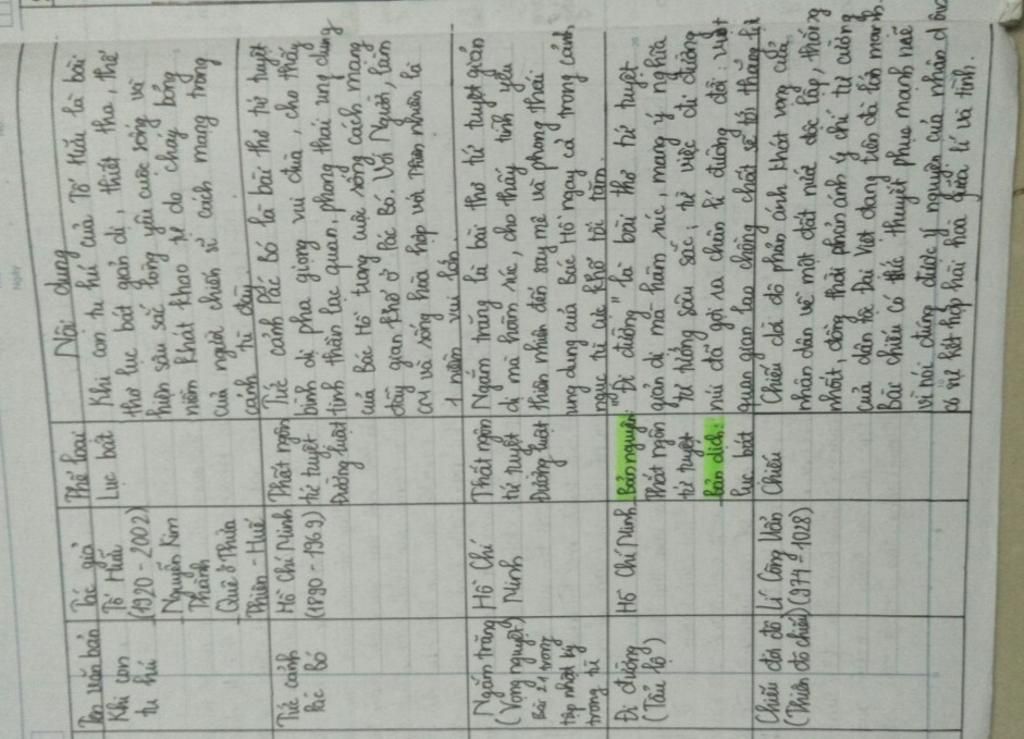 Tên văn bản
Tác giả
Thể loại
Nội dung
Khi con
tu hú
Tố Hữu
(1920 - 2002)
Nguyễn Kim
Thành
Quê ở Thừa
Thiên - Huế
Lục bát
Khi con tu hú của Tố Hữu là bài
thơ lục bát giản dị, thiết tha, thể
hiện sâu sắc lòng yêu cuộc sống và
niềm khát khao tự do cháy bỏng
của người chiến sĩ cách mạng trong
cảnh tù đày.
Tức cảnh
Pác Bó
Hồ Chí Minh
(1890 - 1969)
Thất ngôn
tứ tuyệt
Đường luật
Tức cảnh Pác Bó là bài thơ tứ tuyệt
bình dị pha giọng vui đùa, cho thấy
tinh thần lạc quan, phong thái ung dung
của Bác Hồ trong cuộc sống cách mạng
đầy gian khổ ở Pác Bó. Với Người, làm
CM và sống hòa hợp với thiên nhiên là
1 niềm vui lớn.
Ngắm trăng
(Vọng nguyệt)
Bài 21 trong
tập nhật ký
trong tù
Hồ Chí
Minh
Thất ngôn
tứ tuyệt
Đường luật
Ngắm trăng là bài thơ tứ tuyệt giản
dị mà hàm súc, cho thấy tình yêu
thiên nhiên đến say mê và phong thái
ung dung của Bác Hồ ngay cả trong cảnh
ngục tù cực khổ tối tăm.
Đi đường
(Tẩu lộ)
Hồ Chí Minh
Bản nguyên
Thất ngôn
tứ tuyệt
bản dịch:
lục bát
"Đi đường" là bài thơ tứ tuyệt
giản dị mà hàm súc, mang ý nghĩa
tư tưởng sâu sắc; từ việc đi đường
núi đã gợi ra chân lí đường đời: vượt
qua gian lao chồng chất sẽ tới thắng lợi
Chiếu dời đô
(Thiên đô chiếu)
Lí Công Uẩn
(974 - 1028)
Chiếu
Chiếu dời đô phản ánh khát vọng của
nhân dân về một đất nước độc lập, thống
nhất, đồng thời phản ánh ý chí tự cường
của dân tộc Đại Việt đang trên đà lớn mạnh.
Bài chiếu có sức thuyết phục mạnh mẽ
vì nói đúng được ý nguyện của nhân dân,
có sự kết hợp hài hoà giữa lí và tình.